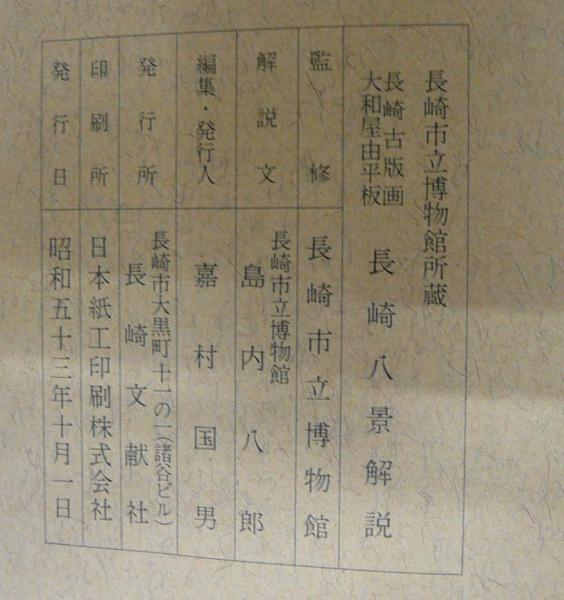 長崎市立博物館所蔵
長崎古版画
大和屋由平板
長崎八景解説
監修
長崎市立博物館
解説文
長崎市立博物館
島内八郎
編集・発行人
嘉村国男
発行所
長崎市大黒町十一の一(諸谷ビル)
長崎文献社
印刷所
日本紙工印刷株式会社
発行日
昭和五十三年十月一日